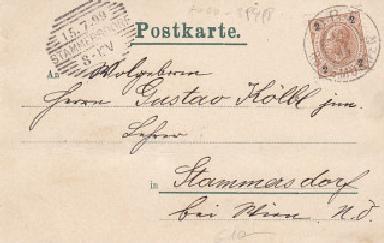 15.7.99
STAMMERSDORF
8-1 V
Postkarte.
2 2
2 2
An Wolgeboren
Herrn Gustav Kölbl jun.
Lehrer
in Stammersdorf
bei Wien. N.Ö.